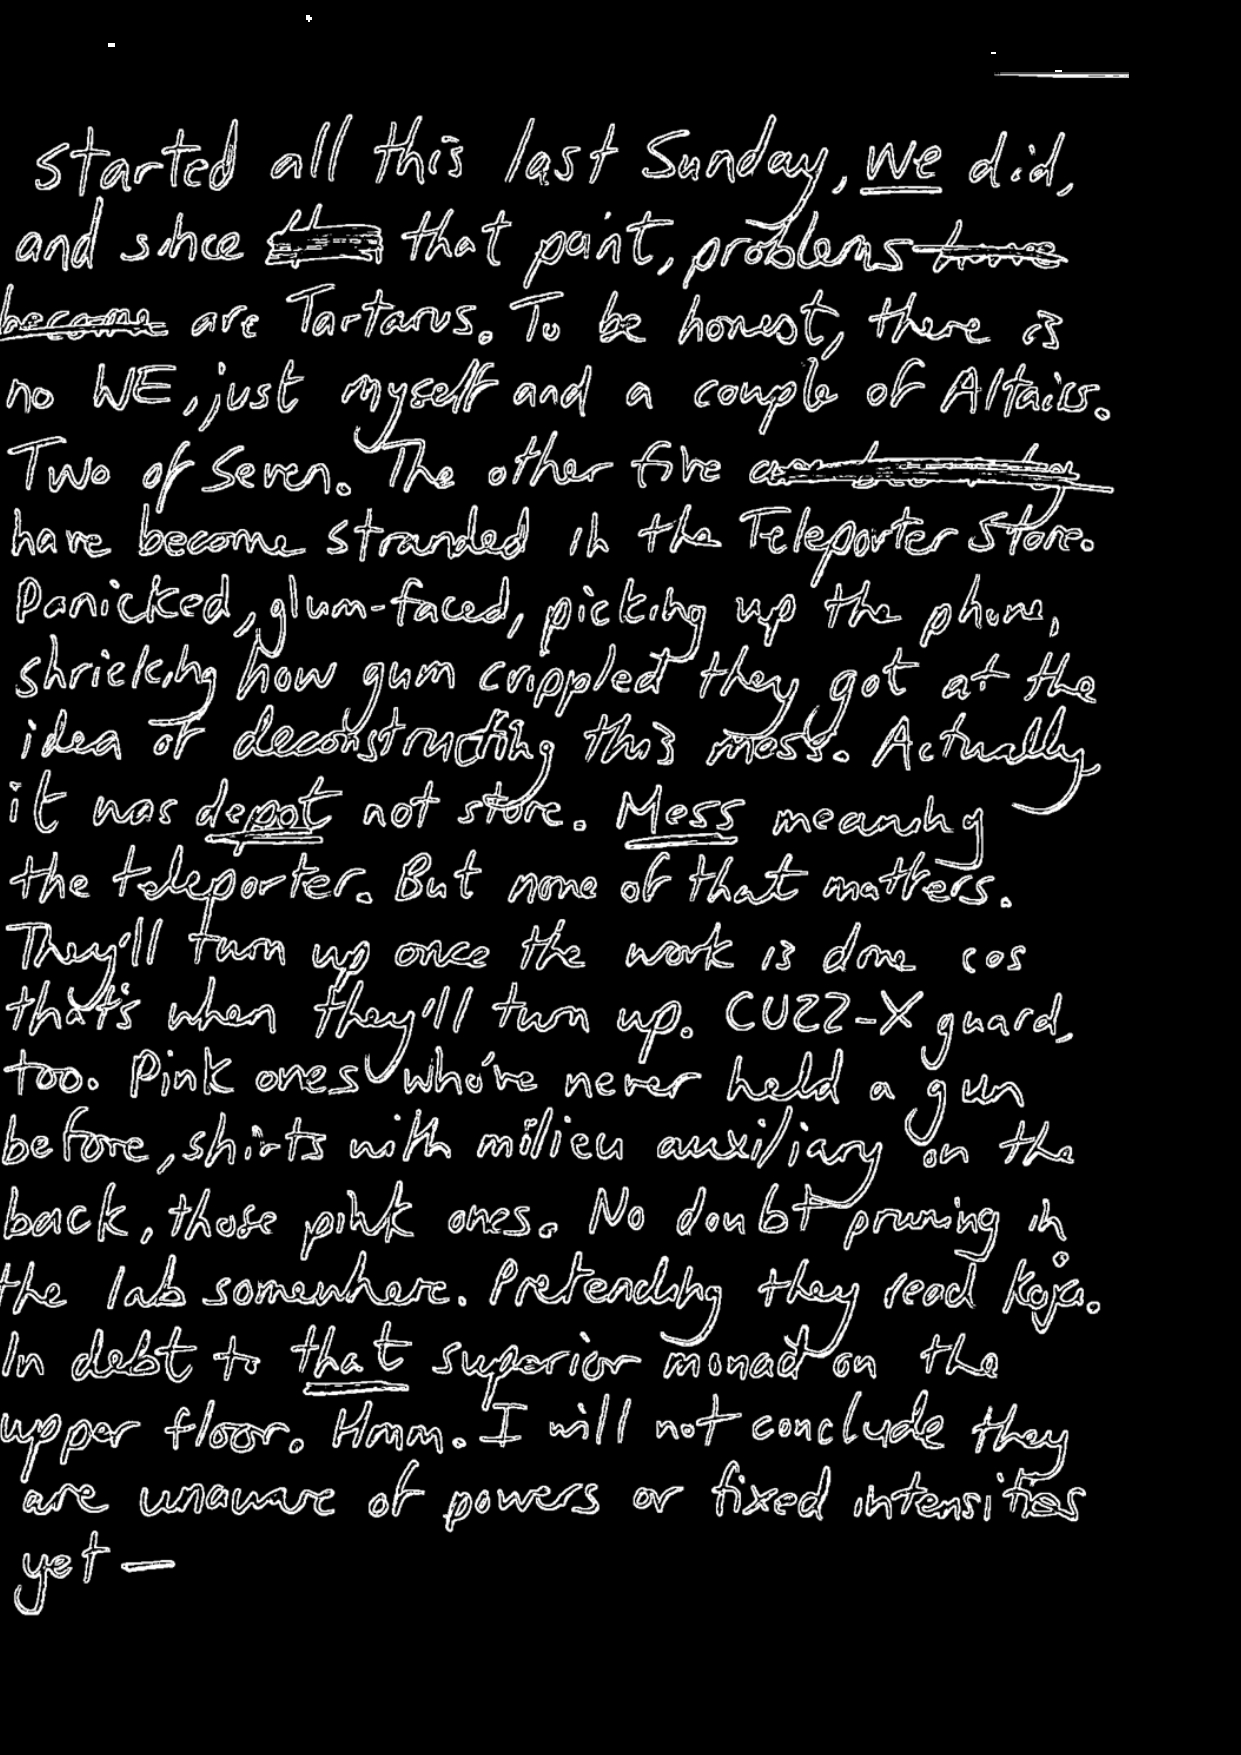 started all this last Sunday, we did,
and since that point, problems have
become are Tartarus. To be honest, there is
no WE, just myself and a couple of Altairs.
Two of Seven. The other five
have become stranded in the Teleporter Store.
Panicked, glum-faced, picking up the phone,
shrieking how gum crippled they got at the
idea of deconstructing this mess. Actually
it was depot not store. Mess meaning
the teleporter. But none of that matters.
They'll turn up once the work is done cos
that's when they'll turn up. CUZZ-X guard,
too. Pink ones who've never held a gun
before, shirts with milieu auxiliary on the
back, those pink ones. No doubt pruning in
the lab somewhere. Pretending they read Koja.
In debt to that superior monad on the
upper floor. Hmm. I will not conclude they
are unaware of powers or fixed intensities
yet —